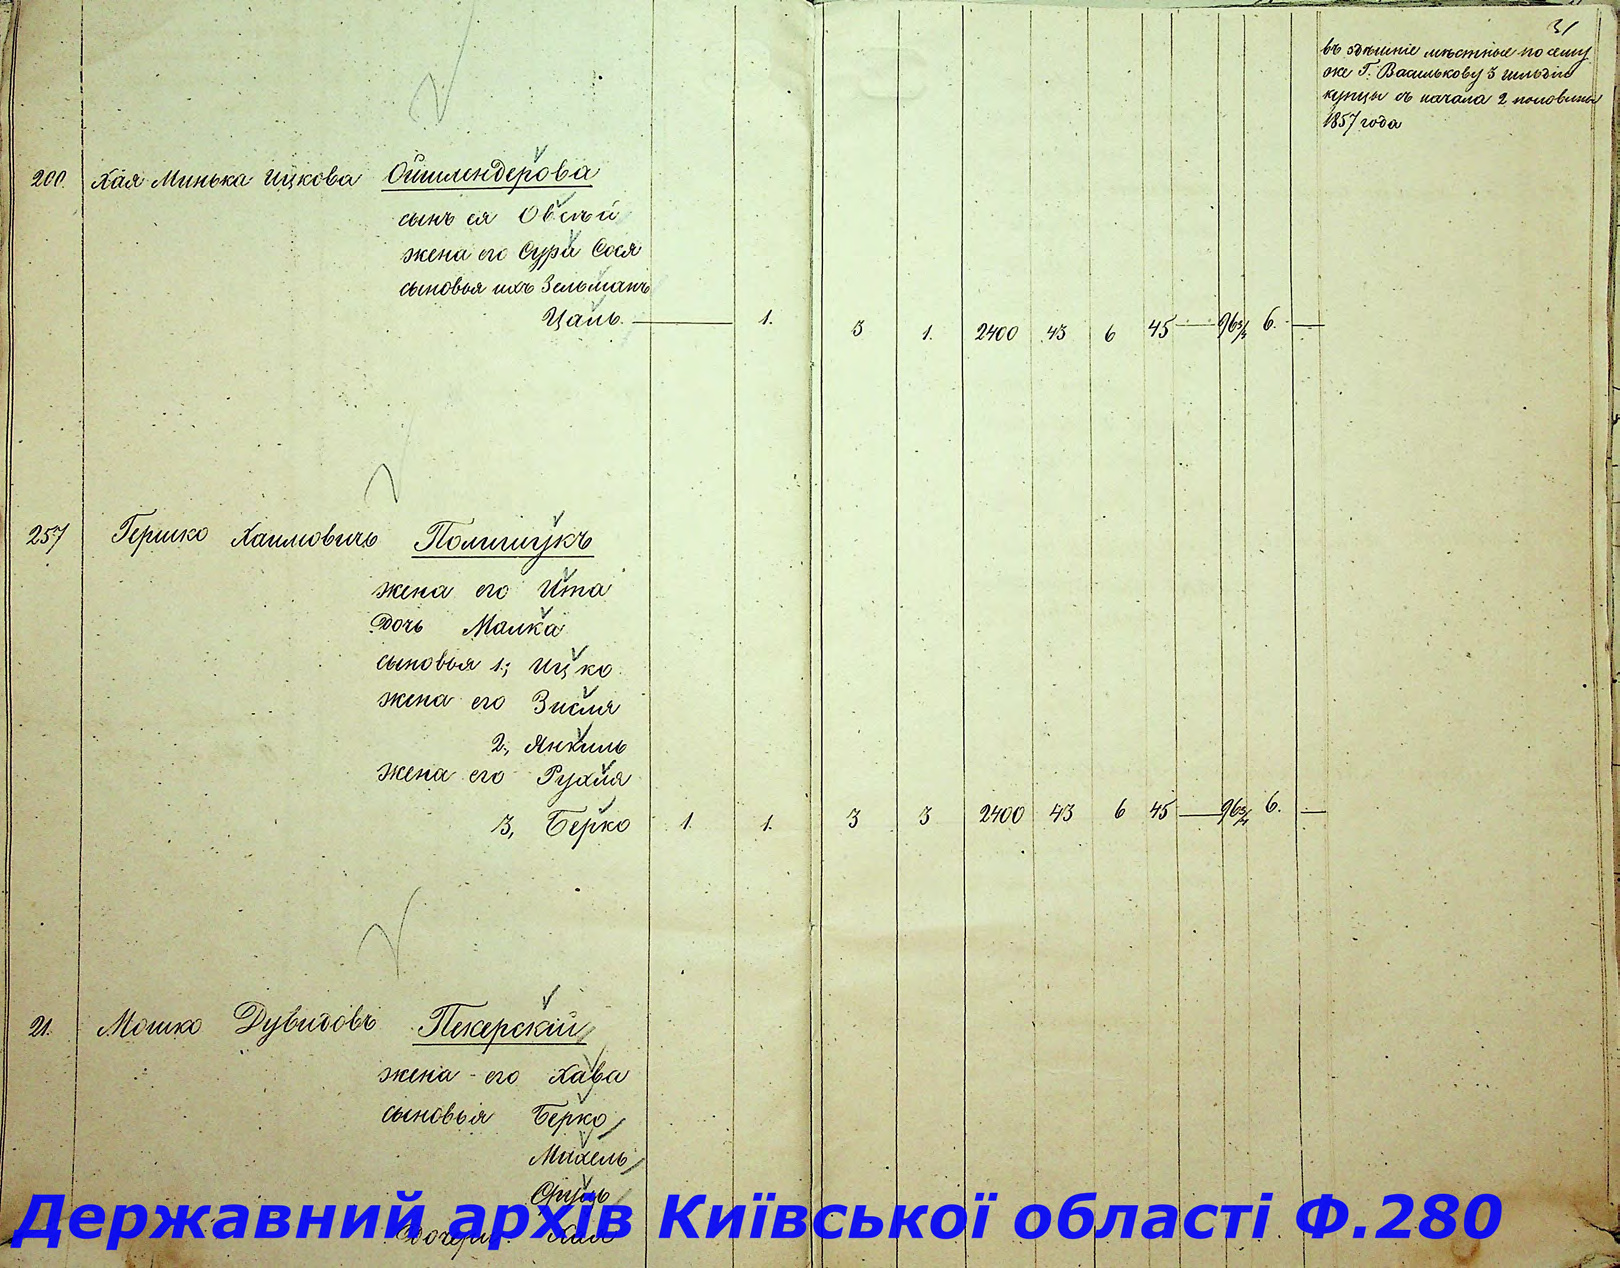 31
въ здешніе местные по сему
же Г. Василькову 3 гильдіи
купцы съ начала 2 половины
1857 года
200. Хая Минька Ицкова Ойшлендерова
сынъ ея Овсей
жена его Сура Сося
сыновья ихъ Зельманъ
Цаль. 1. 3 1. 2400 43 6 45 96¾ 6.
257 Гершко Хаимовичъ Полищукъ
жена его Ита
дочь Малка
сыновья 1; Ицко
жена его Зисля
2, Янкель
жена его Рухля
3, Берко 1. 1. 3 3 2400 43 6 45 96¾ 6.
21. Мошко Дувидовъ Пекерскій
жена его Хава
сыновья Берко
Михель
Сруль
дочери
Державний архів Київської області Ф.280